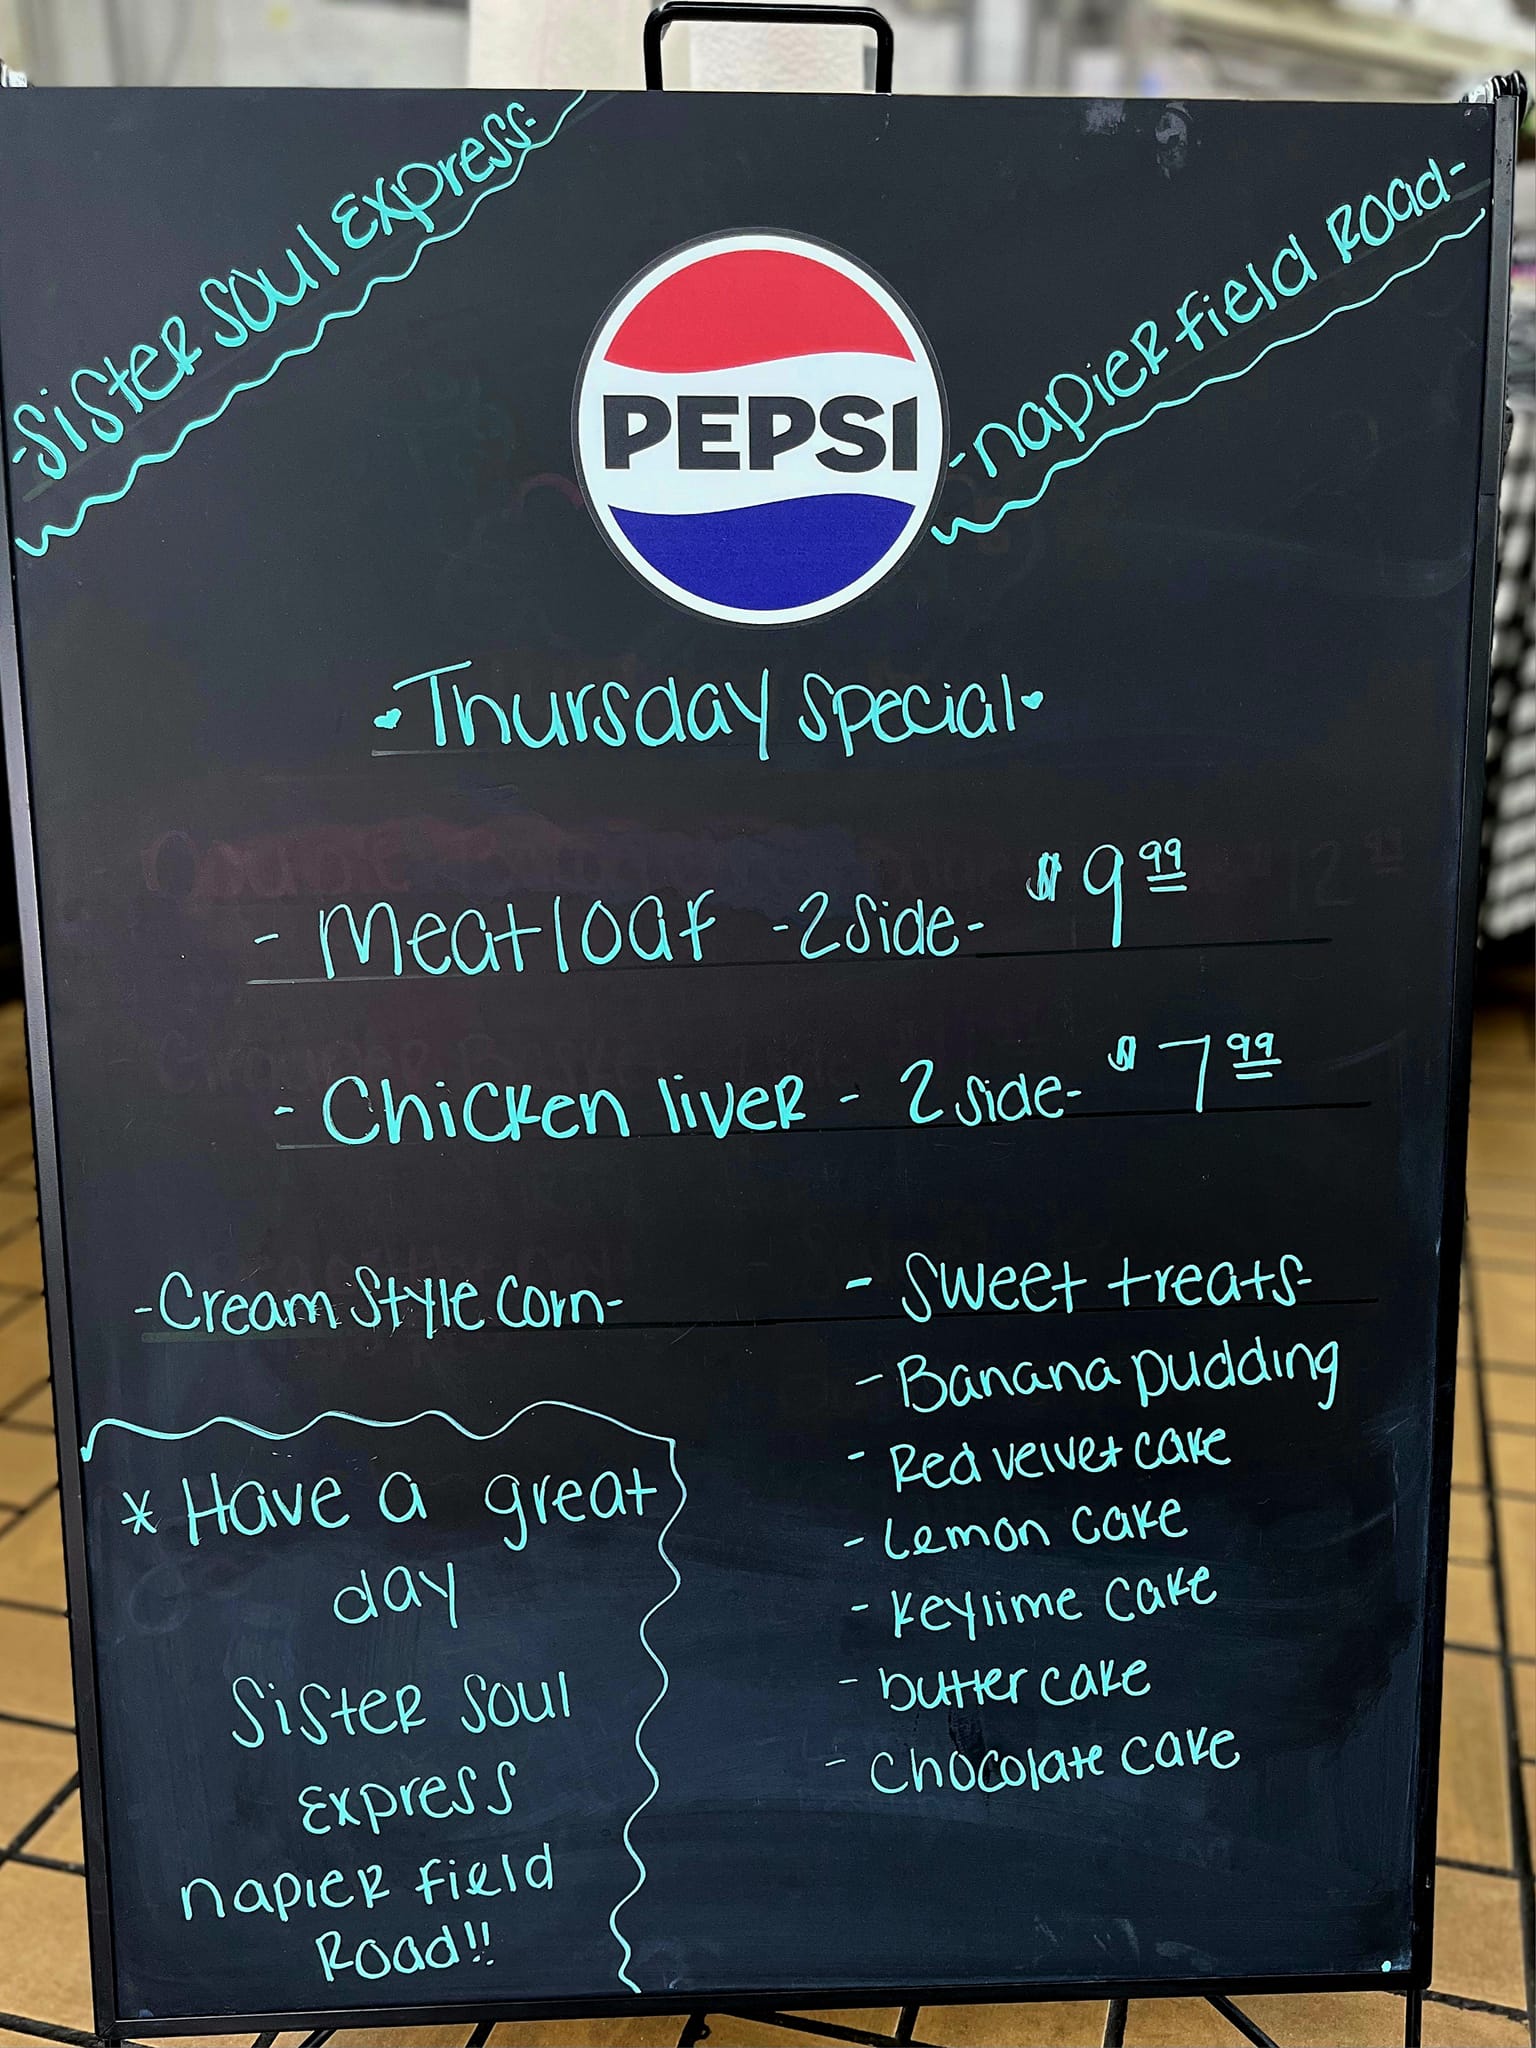 -Sister Soul Express-
-Napier Field Road-
PEPSI
Thursday Special
- Meatloaf -2 Side- $9.99
- Chicken liver - 2 Side- $7.99
-Cream Style Corn-
- Sweet treats-
- Banana pudding
- Red velvet cake
- Lemon cake
- Keylime cake
- butter cake
- Chocolate cake
* Have a great
day
Sister Soul
Express
Napier Field
Road!!